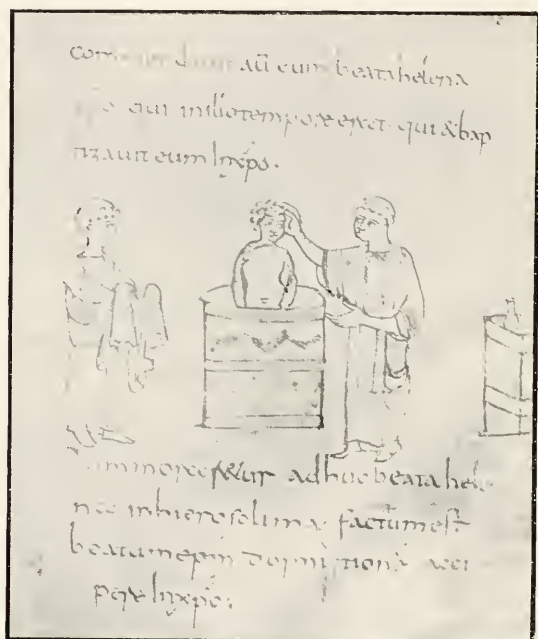 aū eum beata helena
qui in illo tempore erat· qui & bap
tizauit eum in xp̄o·
adhuc beata hele
in hierosolima factum est
beatum ep̄m dormitionē acci
pere in xp̄o: